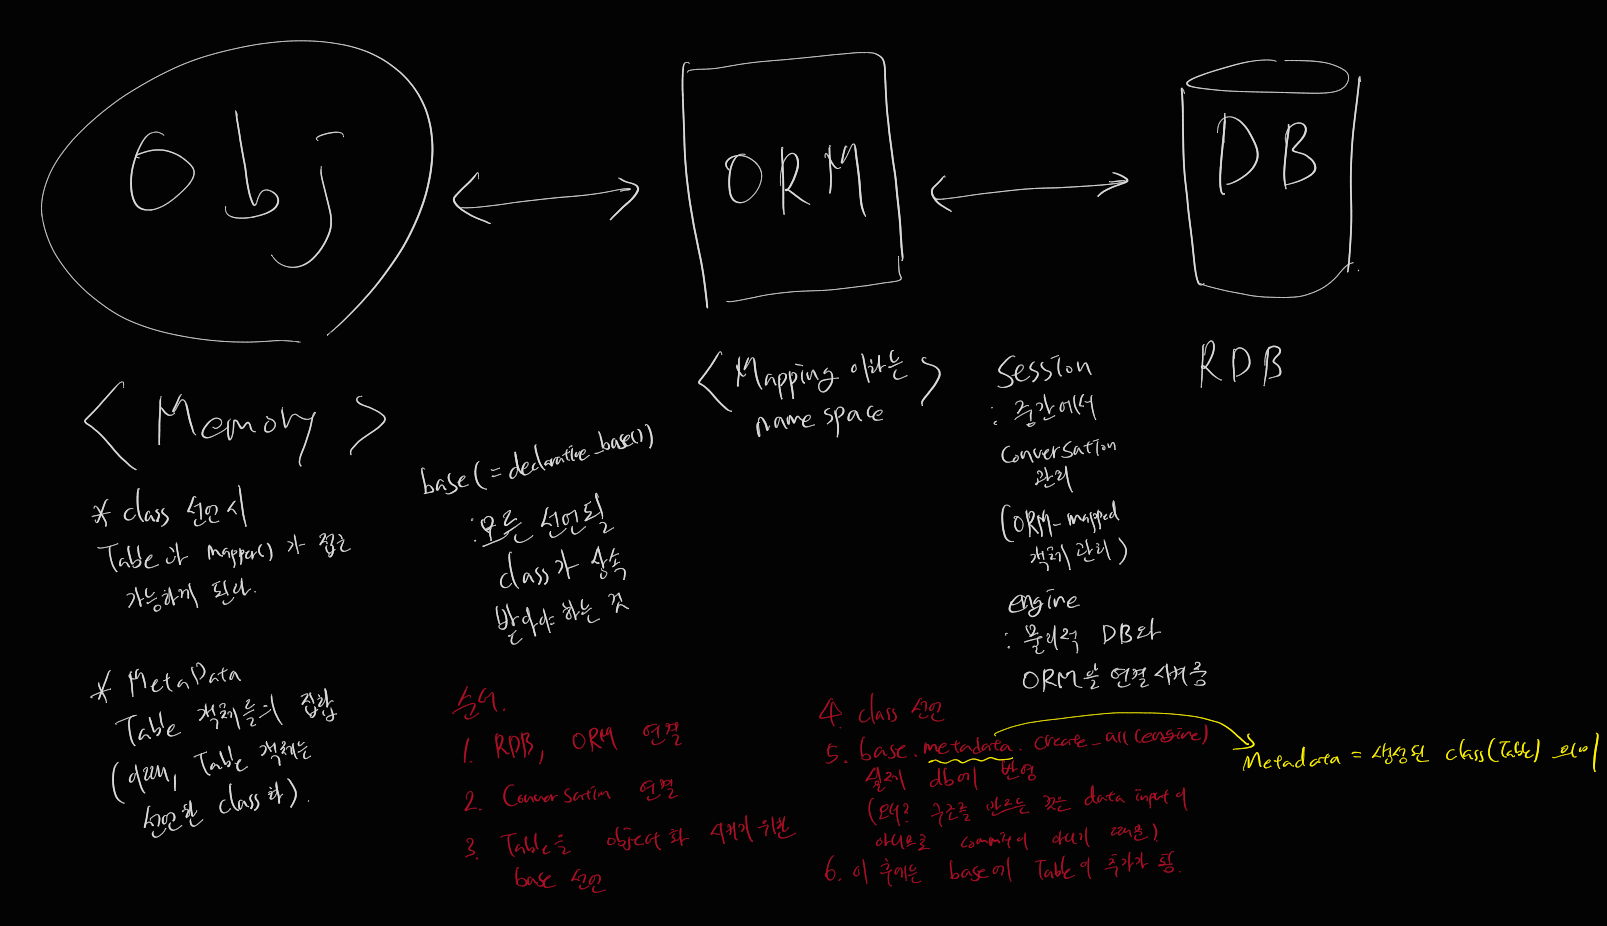 Obj
ORM
DB
<Memory>
* class 선언 시
Table과 mapper()가 접근
가능하게 된다.
* MetaData
Table 객체들의 집합
(이때, Table 객체는
선언한 class화).
base(=declarative_base())
: 모든 선언될
class가 상속
받아야 하는 것
<Mapping 이라는
name space>
Session
: 중간에서
conversation
관리
(ORM-mapped
객체 관리)
engine
: 물리적 DB와
ORM을 연결 시켜줌
RDB
순서.
1. RDB, ORM 연결
2. Conversation 연결
3. Table을 object화 시키기 위한
base 선언
4. class 선언
5. base.metadata.create_all(engine)
실제 db에 반영
(왜? 구조를 만드는 것은 data input이
아니므로 commit이 아니기 때문)
6. 이 후에는 base에 Table이 추가가 됨.
Metadata = 생성된 class(Table) 의미